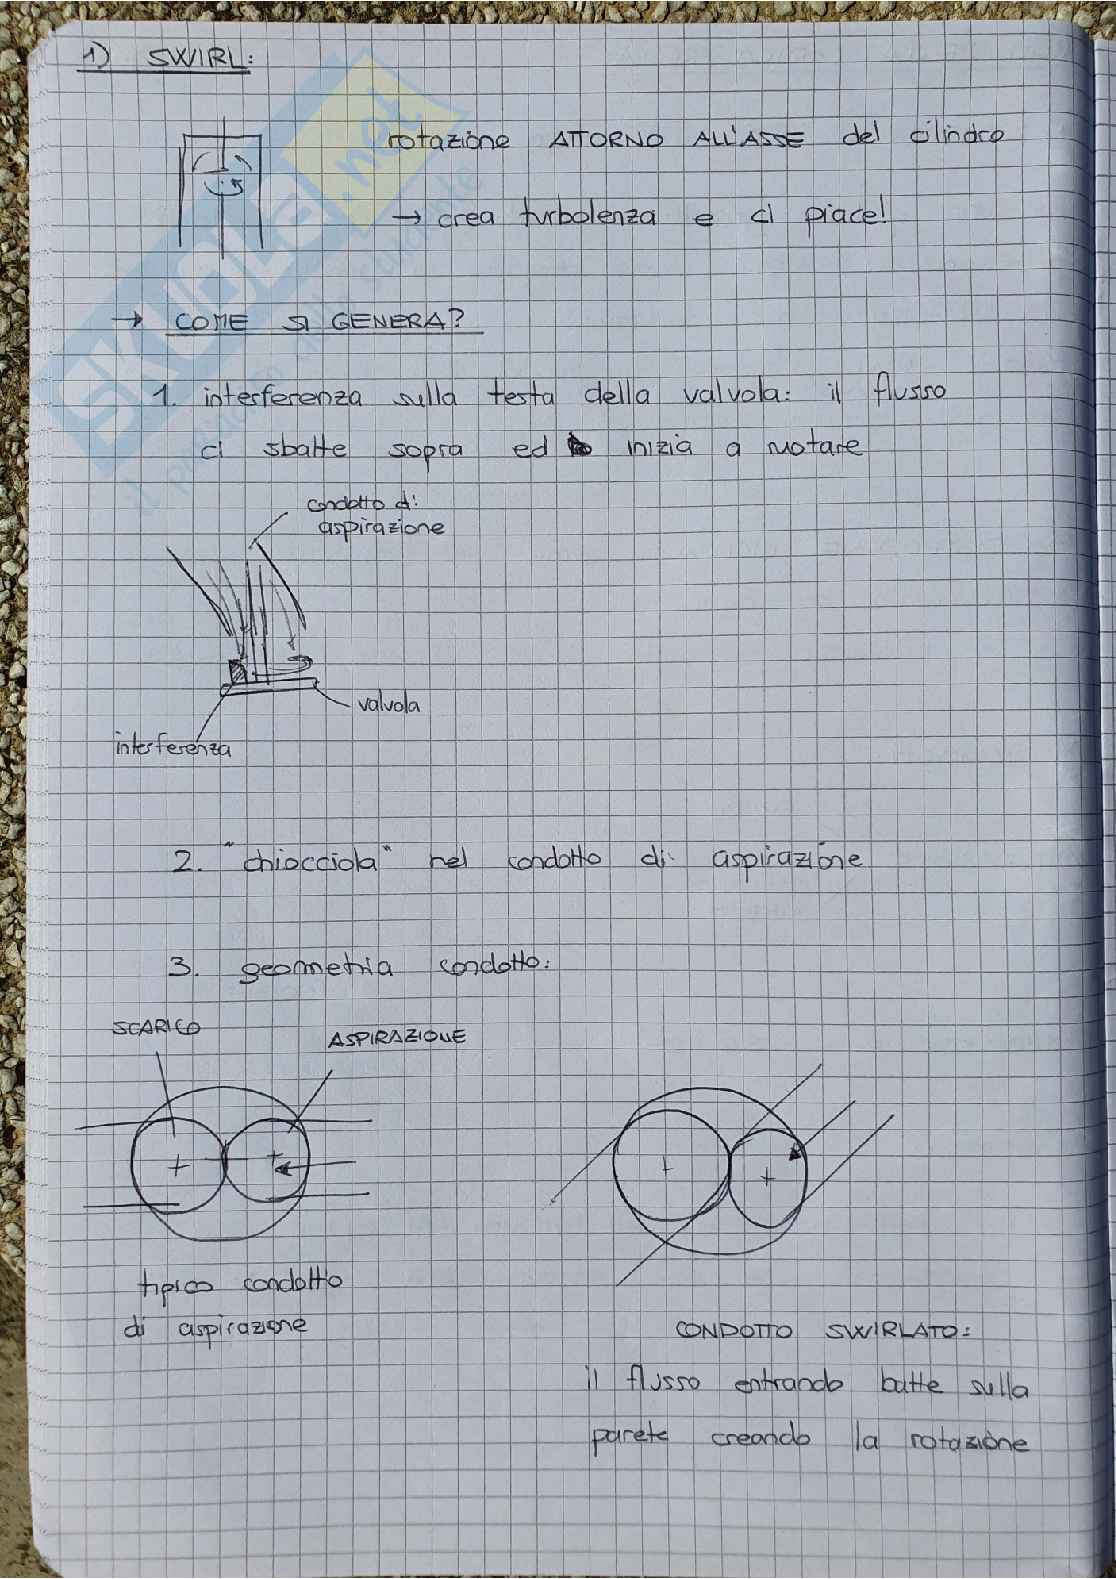 1) SWIRL:
rotazione ATTORNO ALL'ASSE del cilindro
→ crea turbolenza e ci piace!
→ COME SI GENERA?
1. interferenza sulla testa della valvola: il flusso
ci sbatte sopra ed inizia a ruotare
condotto di
aspirazione
valvola
interferenza
2. "chiocciola" nel condotto di aspirazione
3. geometria condotto:
SCARICO
ASPIRAZIONE
tipico condotto
di aspirazione
CONDOTTO SWIRLATO:
il flusso entrando batte sulla
parete creando la rotazione
SKUOLa.net
il paradiso dello studente